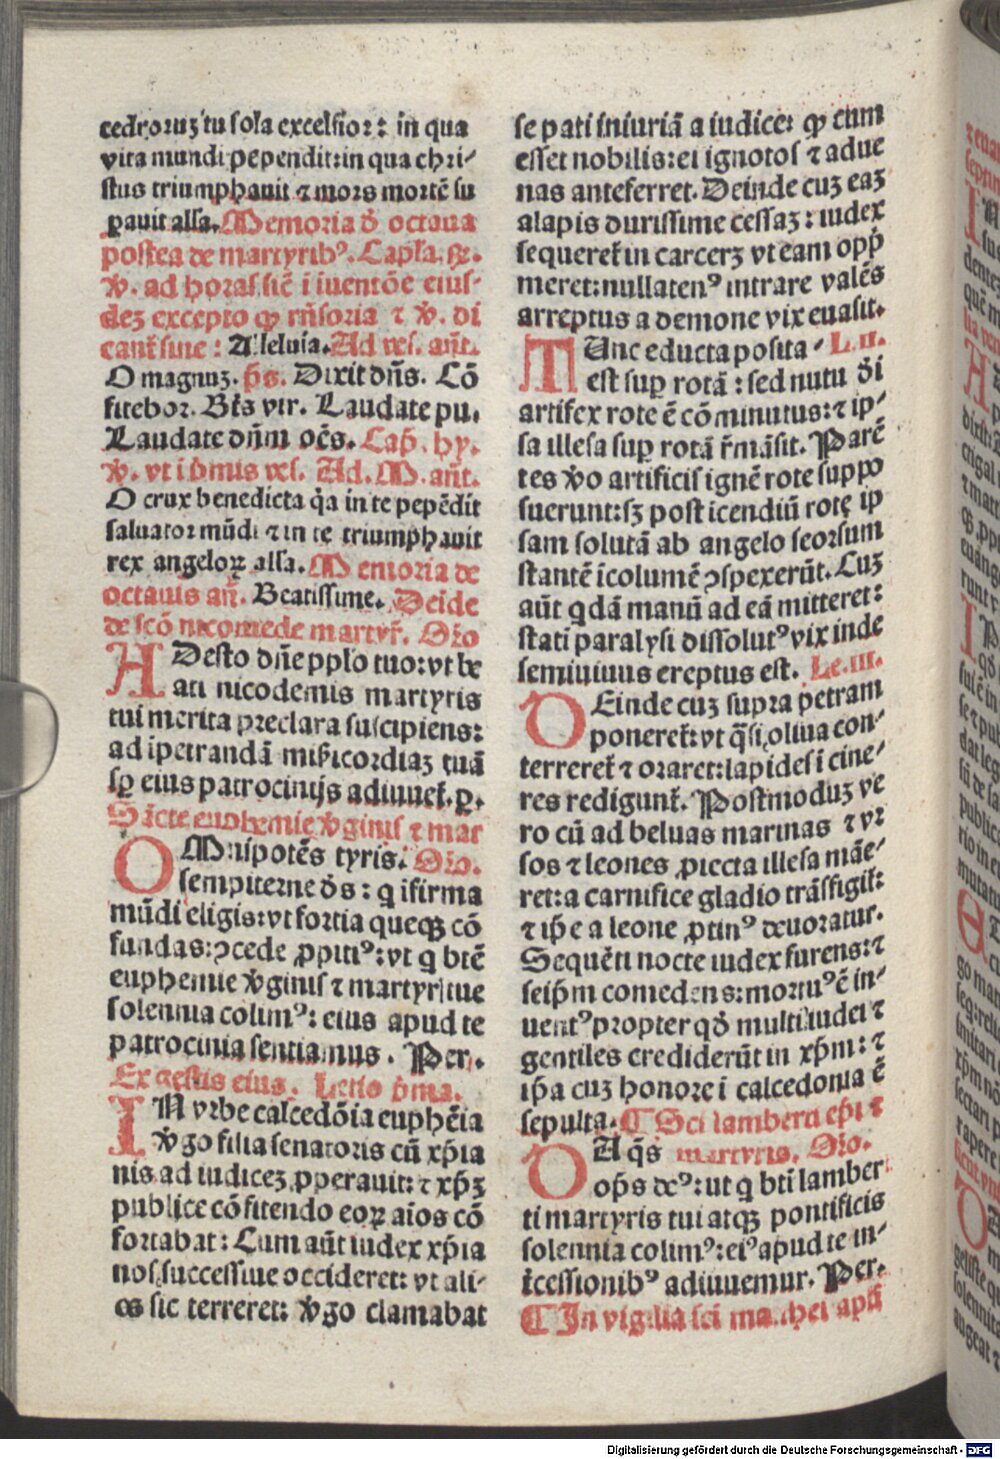 cedroruʒ tu sola excelsior: in qua
vita mundi pependit: in qua chri-
stus triumphauit ⁊ mors mortē su
ꝑauit alla. Memoria ď octaua
postea de martyribꝰ. Capła. ꝶ.
ꝟ. ad horas sic̄ ī īuentōe eius-
deʒ excepto ꝙ rn̄soria ⁊ ꝟ. di
cant̄ sine: Alleluia. Ad vs̄. añt.
O magnuʒ. p̄s. Dixit dn̄s. Cō
fitebor. Bt̄s vir. Laudate pu.
Laudate dn̄m oēs. Cap̄. hy.
ꝟ. vt ī ṗmis vs̄. Ad. M. añt.
O crux benedicta q̄a in te pepēdit
saluator mūdi ⁊ in te triumphauit
rex angeloꝝ alla. Memoria de
octauis añ. Beatissime. Deīde
de scō nicomede martyr̄. Oŕo
ADesto dn̄e pplo tuo: vt be
ati nicodemis martyris
tui merita preclara suscipiens:
ad īpetrandā mīsicordiaʒ tuā
sꝑ eius patrocinijs adiuuet̄. ꝑ.
Sācte euphemie ꝟginis ⁊ mar
OMnipotēs tyris. Oŕo.
sempiterne ds̄: q ifirma
mūdi eligis: vt fortia queqꝫ cō
fundas: ↄcede ꝓpitiꝰ: vt q btē
euphemie ꝟginis ⁊ martyr̄ tue
solennia colimꝰ: eius apud te
patrocinia sentiamus. Per.
Ex gestis eius. Lectio p̄ma.
IN vrbe calcedōia euphēia
ꝟgo filia senatoris cū xp̄ia
nis ad iudiceʒ ꝓperauit: ⁊ xp̄ʒ
publice cōfitendo eoꝝ aīos cō
fortabat: Cum aūt iudex xp̄ia
nos successiue occideret: vt ali-
os sic terreret: ꝟgo clamabat
se pati iniuriā a iudice: ꝙ cum
esset nobilis: ei ignotos ⁊ adue
nas anteferret. Deinde cuʒ eaʒ
alapis durissime cessaʒ: iudex
sequeret̄ in carcerʒ vt eam opp̄
meret: nullatenꝰ intrare valēs
arreptus a demone vix euasit.
TUnc educta posita L. ii.
est suꝑ rotā: sed nutu di
artifex rote ē cōminutus: ⁊ ip-
sa illesa suꝑ rotā r̄māsit. Parē
tes ꝟo artificis ignē rote suppo
suerunt: sʒ post icendiū rotę ip
sam solutā ab angelo seorsum
stantē icolumē ↄspexerūt. Cuʒ
aūt qdā manū ad eā mitteret:
stati paralysi dissolutꝰ vix inde
semiuiuus ereptus est. Le. iii.
DEinde cuʒ supra petram
poneret̄: vt q̄si oliua con-
terreret̄ ⁊ oraret: lapides i cine-
res redigunt̄. Postmoduʒ ve
ro cū ad beluas marinas ⁊ vr
sos ⁊ leones ꝓiecta illesa māe-
ret: a carnifice gladio trāsfigit̄:
⁊ ip̄e a leone ꝓtinꝰ deuoratur.
Sequēti nocte iudex furens: ⁊
seip̄m comedens: mortuꝰ ē in-
uentꝰ propter qd̄ multi iudei ⁊
gentiles crediderūt in xp̄m: ⁊
ip̄a cuʒ honore i calcedonia ē
sepulta. ¶ Sci lamberti ep̄i ⁊
DA q̄s martyris. Oŕo.
op̄s deꝰ: ut q bt̄i lamber
ti martyris tui atqꝫ pontificis
solennia colimꝰ: eiꝰ apud te in-
t̄cessionibꝰ adiuuemur. Per.
¶ In vigilia sci mathei apl̄i
Digitalisierung gefördert durch die Deutsche Forschungsgemeinschaft - DFG